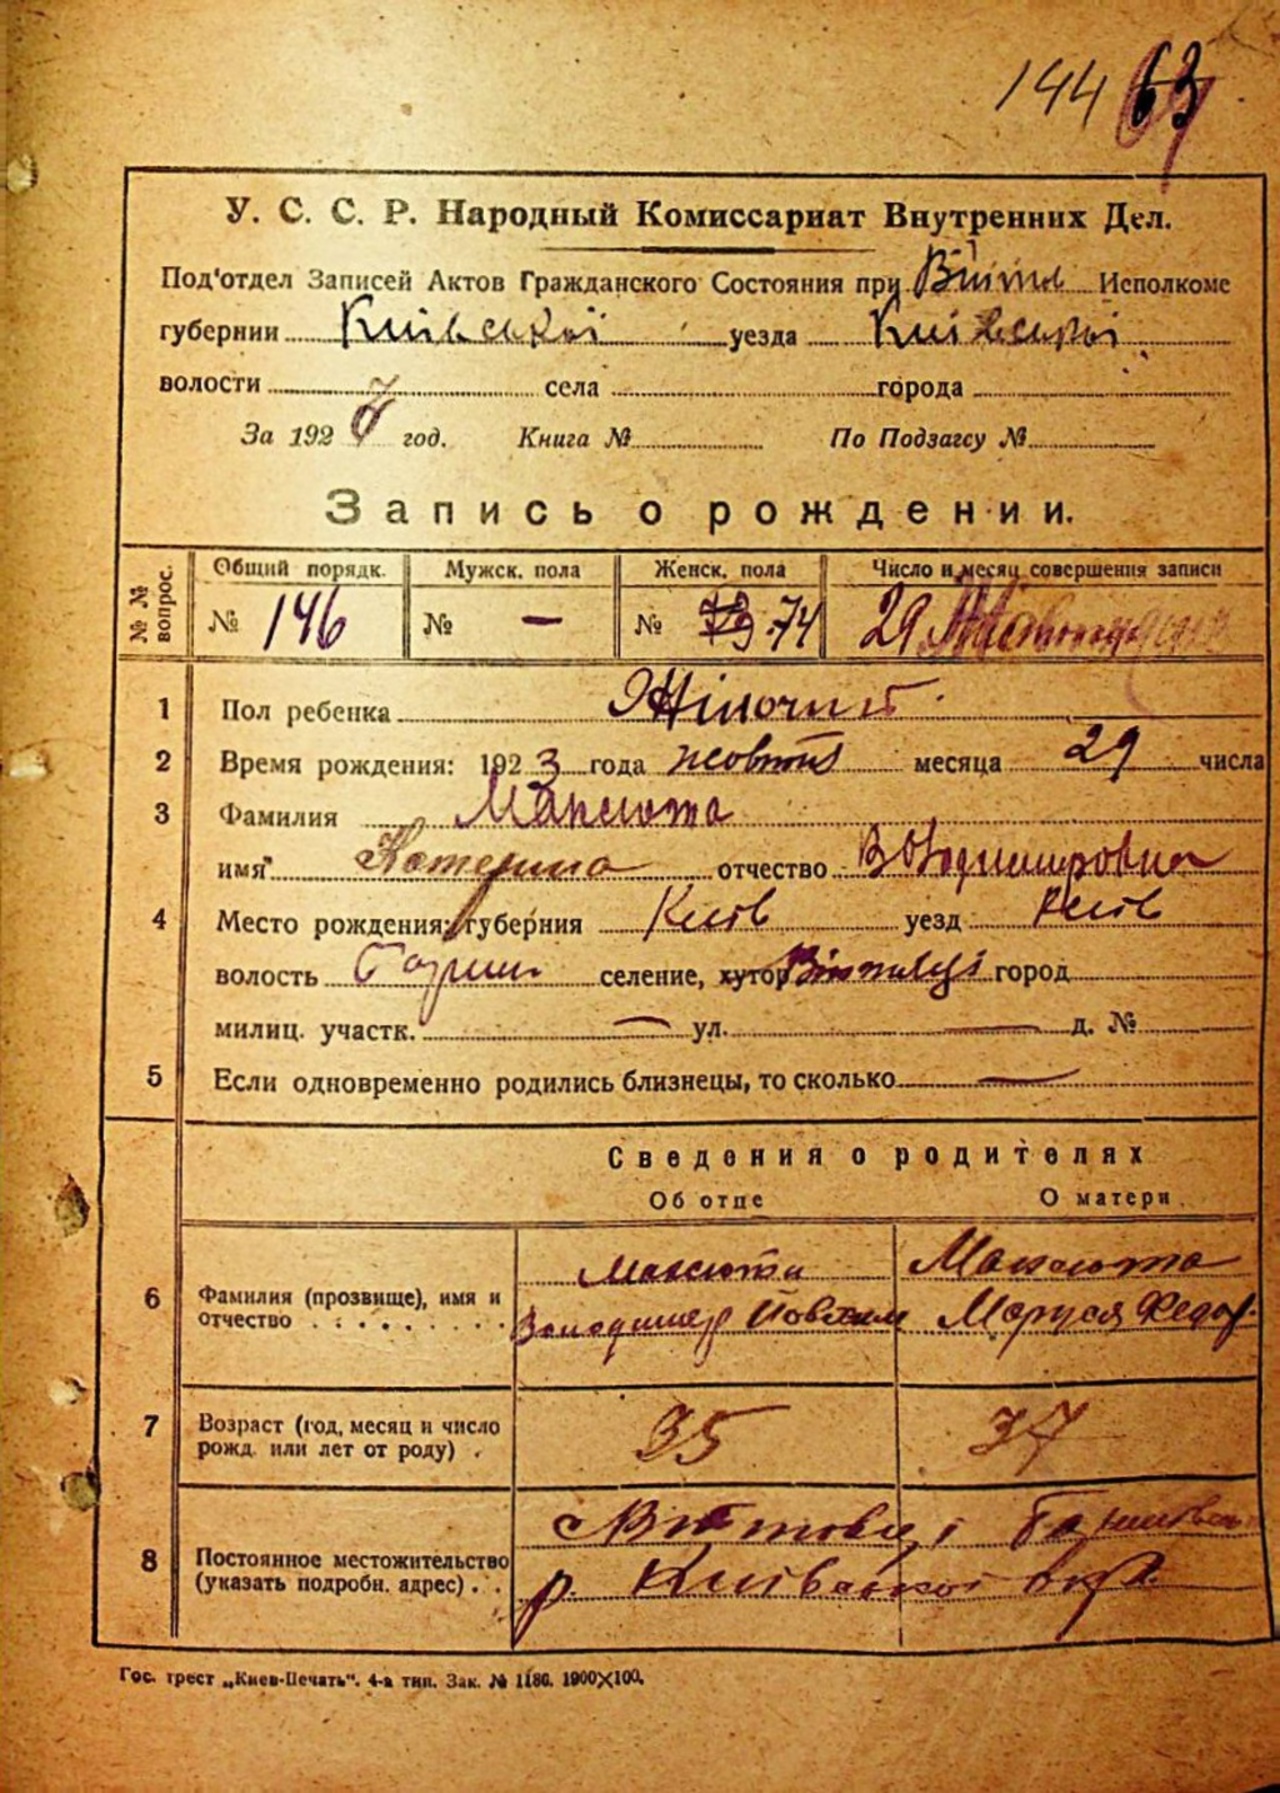 144 63
У. С. С. Р. Народный Комиссариат Внутренних Дел.
Под'отдел Записей Актов Гражданского Состояния при Исполкоме
губернии Київської уезда Київської
волости села города
За 192 год. Книга № По Подзагсу №
Запись о рождении.
№ № вопрос. Общий порядк. Мужск. пола Женск. пола Число и месяц совершения записи
№ 146 № — № 73 74 29
1 Пол ребенка Жіночий
2 Время рождения: 1923 года жовтня месяца 29 числа
3 Фамилия Максюта
имя Катерина отчество Володимировна
4 Место рождения: губерния Київ уезд Київ
волость селение, хутор город
милиц. участк. — ул. — д. №
5 Если одновременно родились близнецы, то сколько —
Сведения о родителях
Об отце О матери
6 Фамилия (прозвище), имя и отчество Максюта Володимер Йовхим Максюта Маруся Федор.
7 Возраст (год, месяц и число рожд. или лет от роду) 35 37
8 Постоянное местожительство (указать подробн. адрес)
р. Київської окр.
Гос. трест „Киев-Печать". 4-а тип. Зак. № 1186. 1900×100.